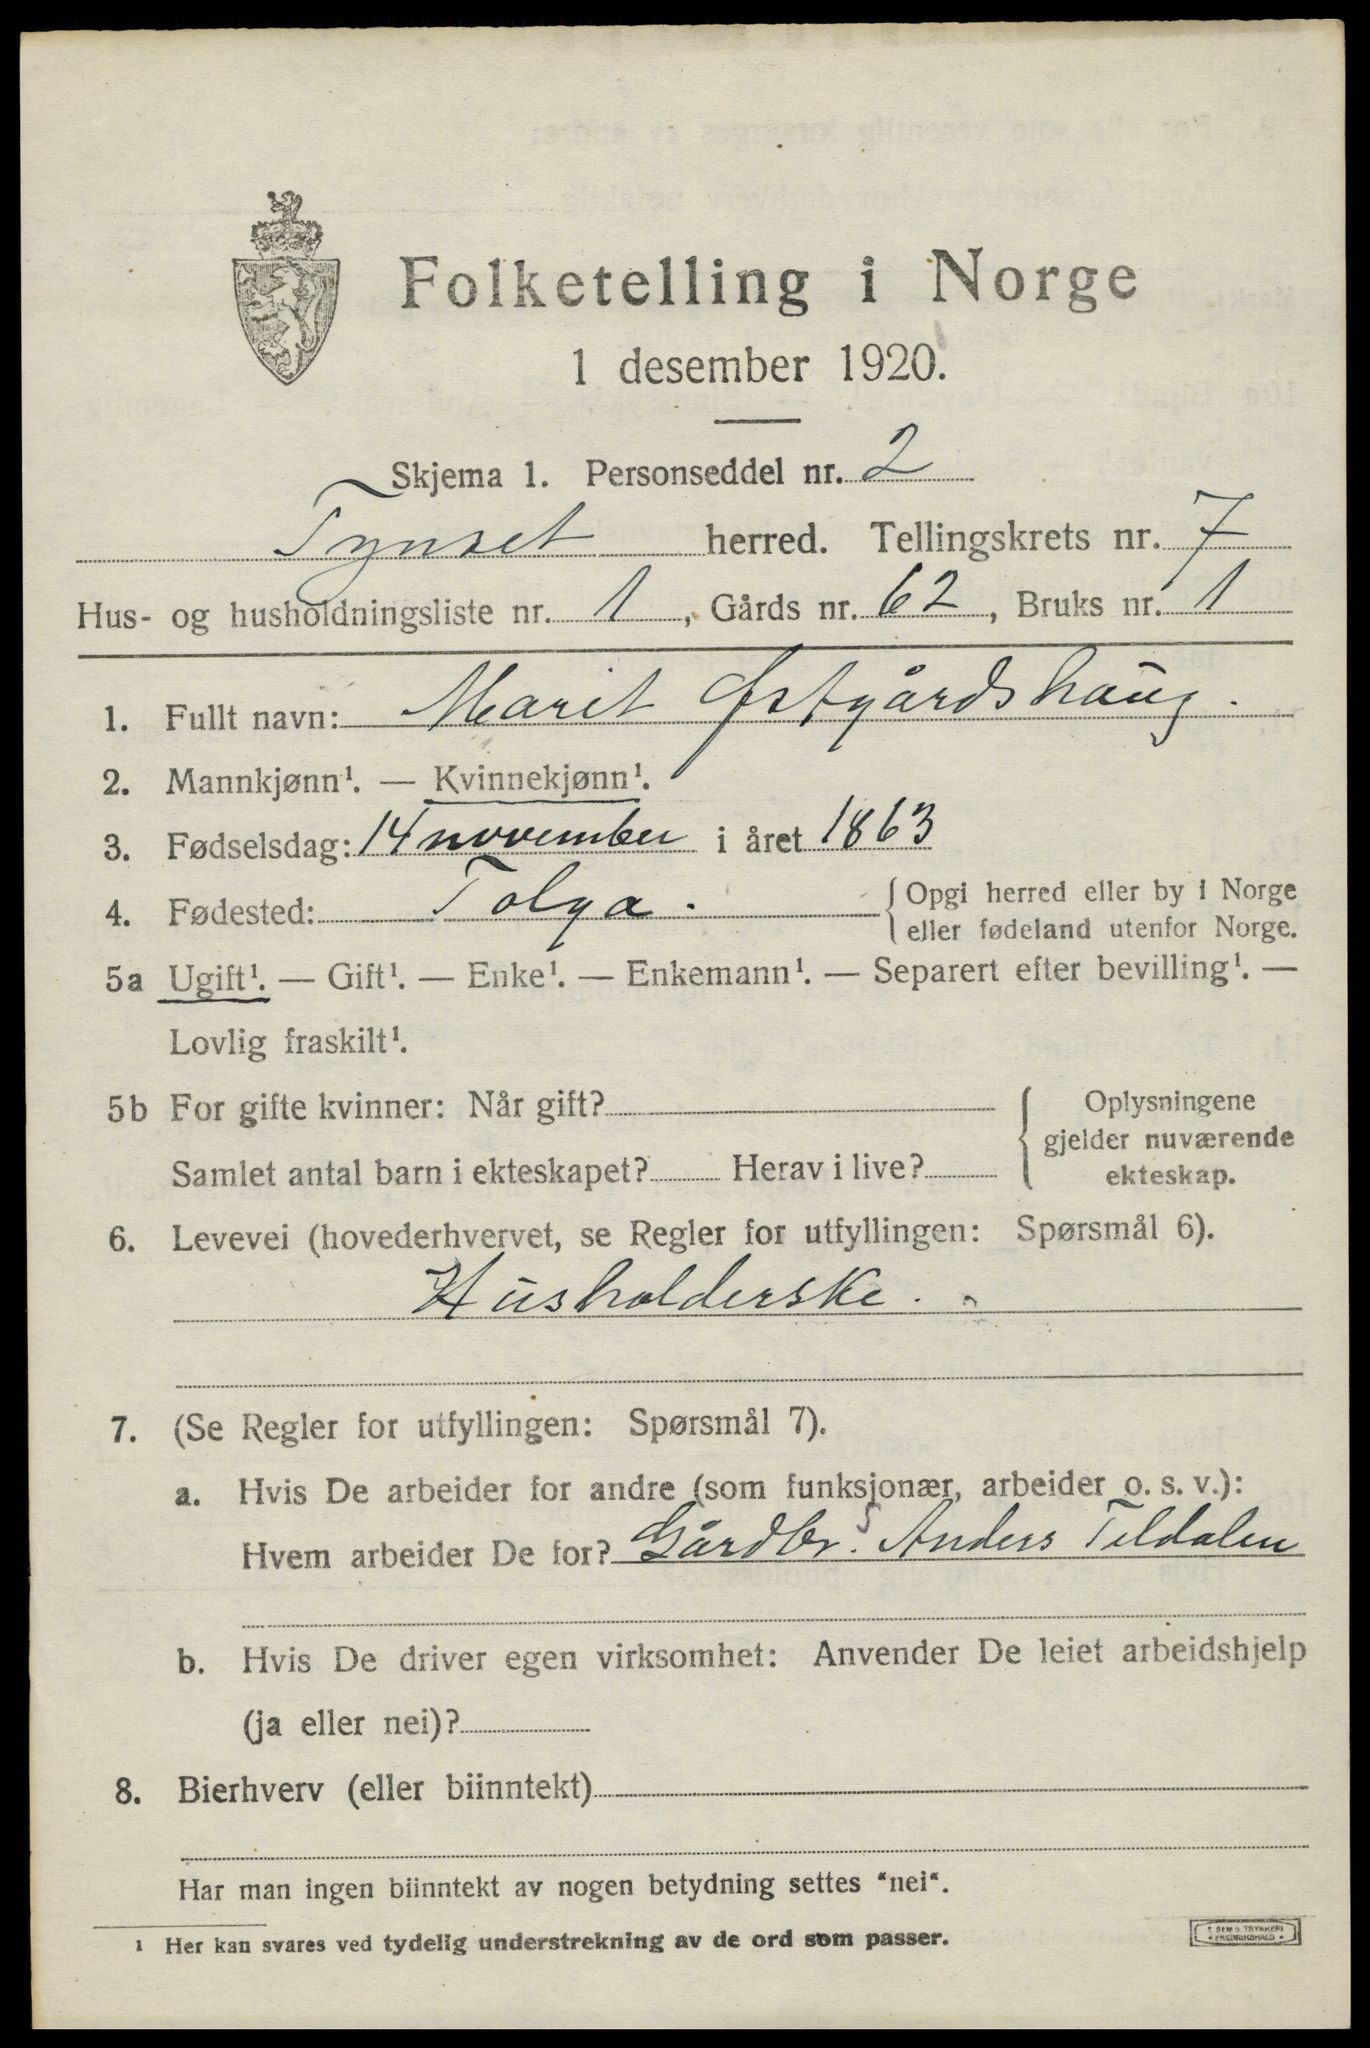 Folketelling i Norge
1 desember 1920.
Skjema 1. Personseddel nr. 2
Tynset herred. Tellingskrets nr. 7
Hus- og husholdningsliste nr. 1, Gårds nr. 62, Bruks nr. 1
1. Fullt navn: Marit Østgårdshaug.
2. Mannkjønn¹. — Kvinnekjønn¹.
3. Fødselsdag: 14 november i året 1863
4. Fødested: Tolga. { Opgi herred eller by i Norge
eller fødeland utenfor Norge.
5a Ugift¹. — Gift¹. — Enke¹. — Enkemann¹. — Separert efter bevilling¹. —
Lovlig fraskilt¹.
5b For gifte kvinner: Når gift? { Oplysningene
gjelder nuværende
Samlet antal barn i ekteskapet? Herav i live? ekteskap.
6. Levevei (hovederhvervet, se Regler for utfyllingen: Spørsmål 6).
Husholderske.
7. (Se Regler for utfyllingen: Spørsmål 7).
a. Hvis De arbeider for andre (som funksjonær, arbeider o. s. v.):
Hvem arbeider De for? Gårdbr. Anders Tildalen
b. Hvis De driver egen virksomhet: Anvender De leiet arbeidshjelp
(ja eller nei)?
8. Bierhverv (eller biinntekt)
Har man ingen biinntekt av nogen betydning settes "nei".
¹ Her kan svares ved tydelig understrekning av de ord som passer.